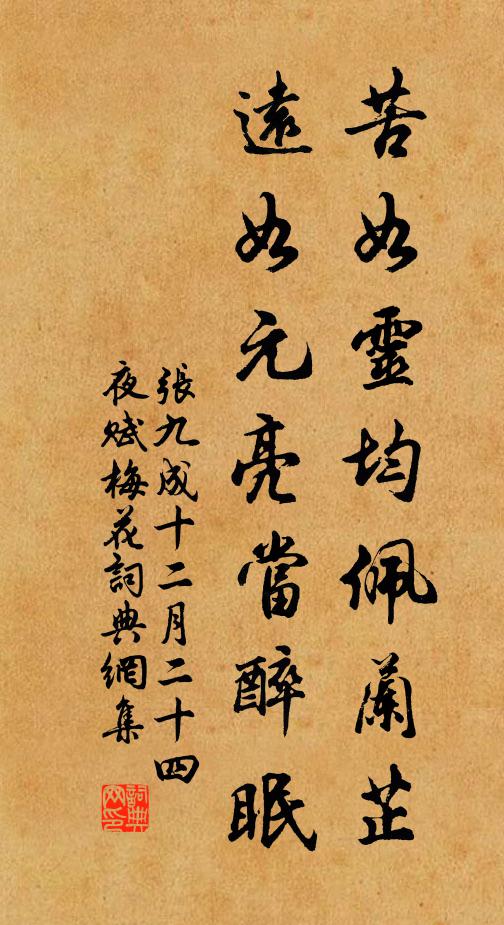 苦如靈均佩蘭芷
遠如元亮當醉眠
張九成十二月二十四
夜賦梅花詞典網集
詞典
网印